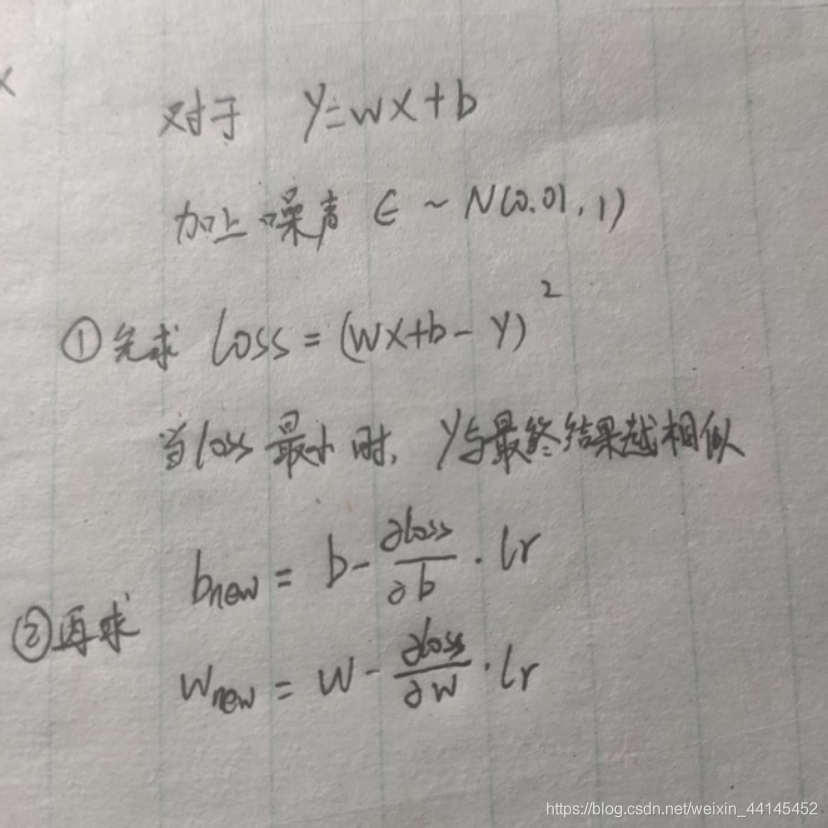 对于 y=wx+b
加上噪声 ∈ ~ N(0.01,1)
①先求 loss = (wx+b-y)²
当loss最小时, y与最终结果越相似
b_new = b - ∂loss/∂b · lr
②再求
w_new = w - ∂loss/∂w · lr
https://blog.csdn.net/weixin_44145452